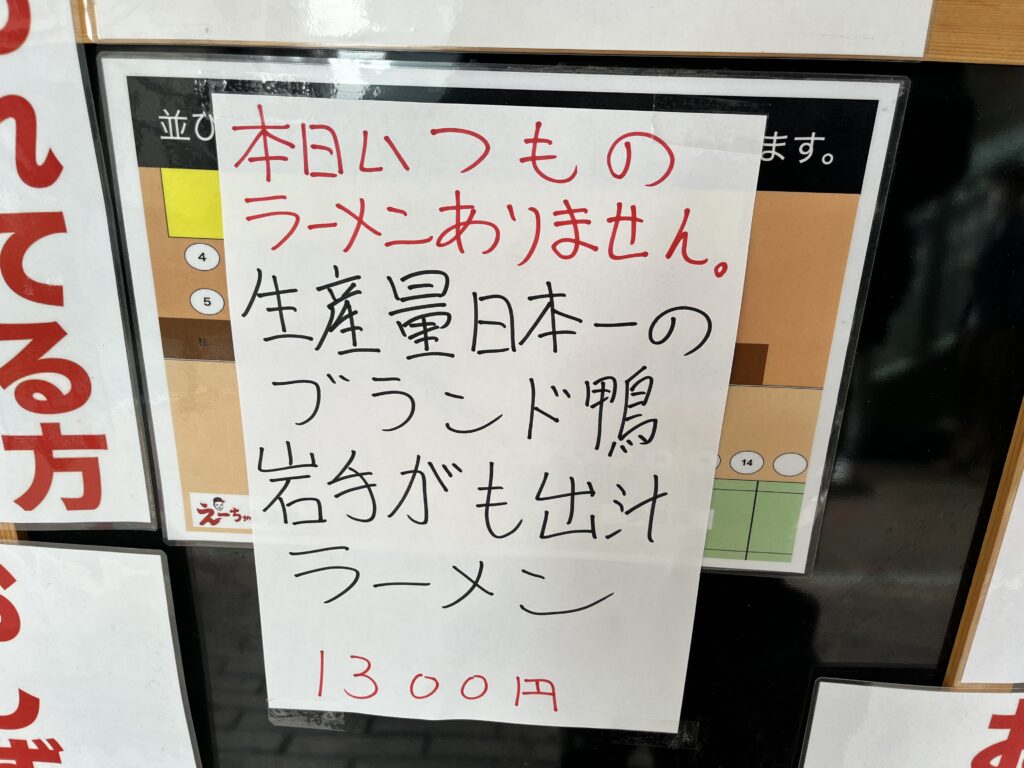 本日いつもの
ラーメンありません。
生産量日本一の
ブランド鴨
岩手がも出汁
ラーメン
1300円
並び
ます。
4
5
柱
14
えーちゃ
れてる方